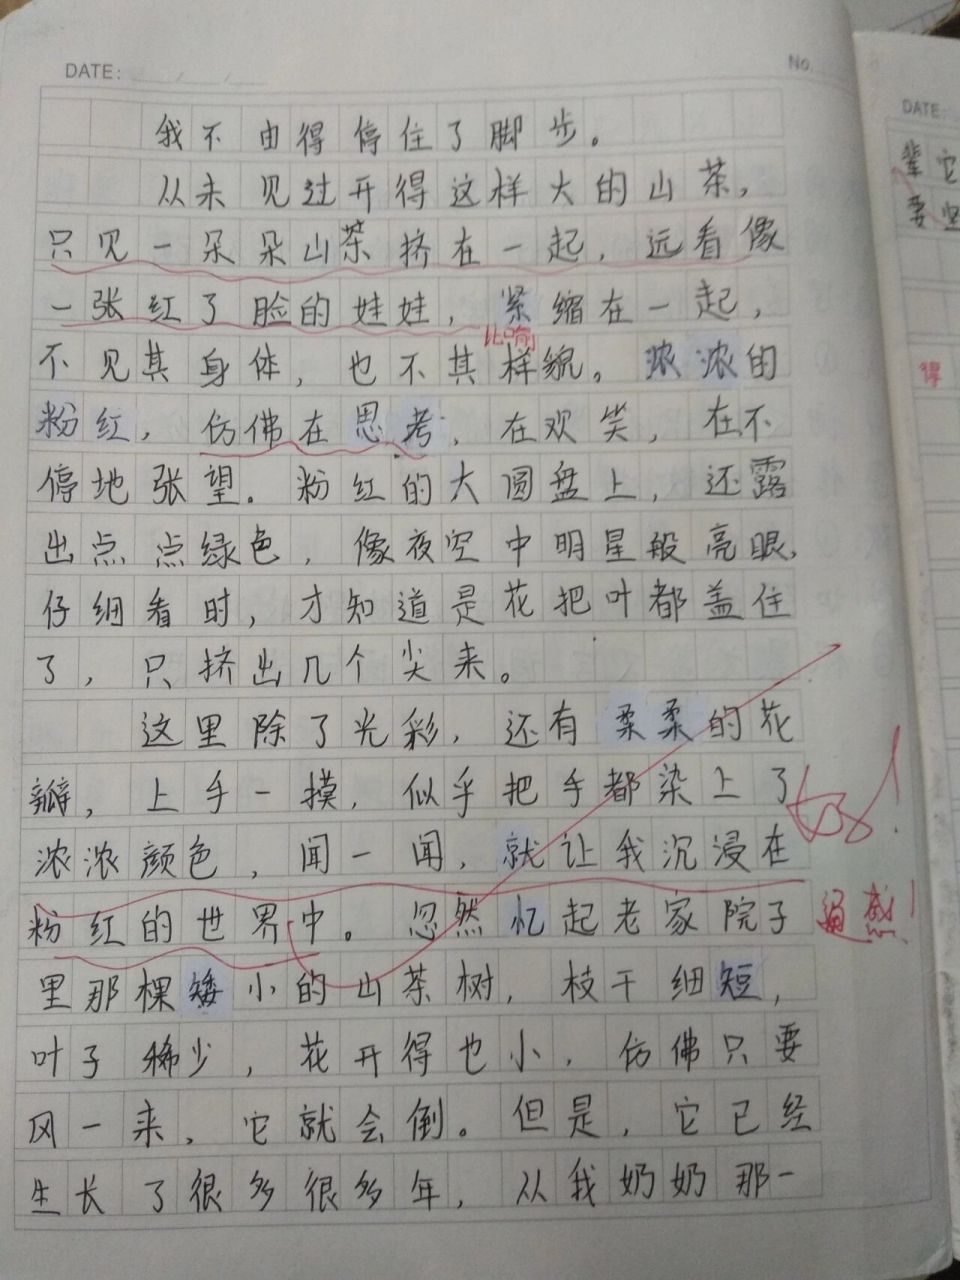 DATE:
No.
我不由得停住了脚步。
从未见过开得这样大的山茶，
只见一朵朵山茶挤在一起，远看像
一张红了脸的娃娃，紧缩在一起，
比喻
不见其身体，也不其样貌。浓浓的
粉红，仿佛在思考，在欢笑，在不
停地张望。粉红的大圆盘上，还露
出点点绿色，像夜空中明星般亮眼，
仔细看时，才知道是花把叶都盖住
了，只挤出几个尖来。
这里除了光彩，还有柔柔的花
瓣，上手一摸，似乎把手都染上了
好！
浓浓颜色，闻一闻，就让我沉浸在
粉红的世界中。忽然忆起老家院子
通感！
里那棵矮小的山茶树，枝干细短，
叶子稀少，花开得也小，仿佛只要
风一来，它就会倒。但是，它已经
生长了很多很多年，从我奶奶那一
DATE:
辈它
要坚
得